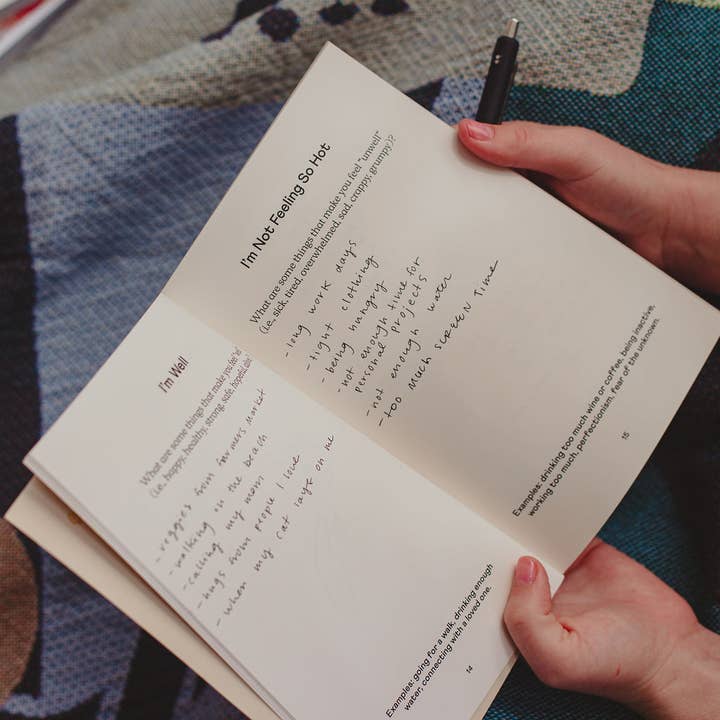 I'm Well
What are some things that make you feel
(i.e., happy, healthy, strong, safe, hopeful
- veggies from farmers market
- walking on the beach
- calling my mom
- hugs from people I love
- when my cat lays on me
Examples: going for a walk, drinking enough
water, connecting with a loved one.
14
I'm Not Feeling So Hot
What are some things that make you feel "unwell"
(i.e., sick, tired, overwhelmed, sad, crappy, grumpy)?
- long work days
- tight clothing
- being hungry
- not enough time for
personal projects
- not enough water
- too much SCREEN TIME
Examples: drinking too much wine or coffee, being inactive,
working too much, perfectionism, fear of the unknown.
15